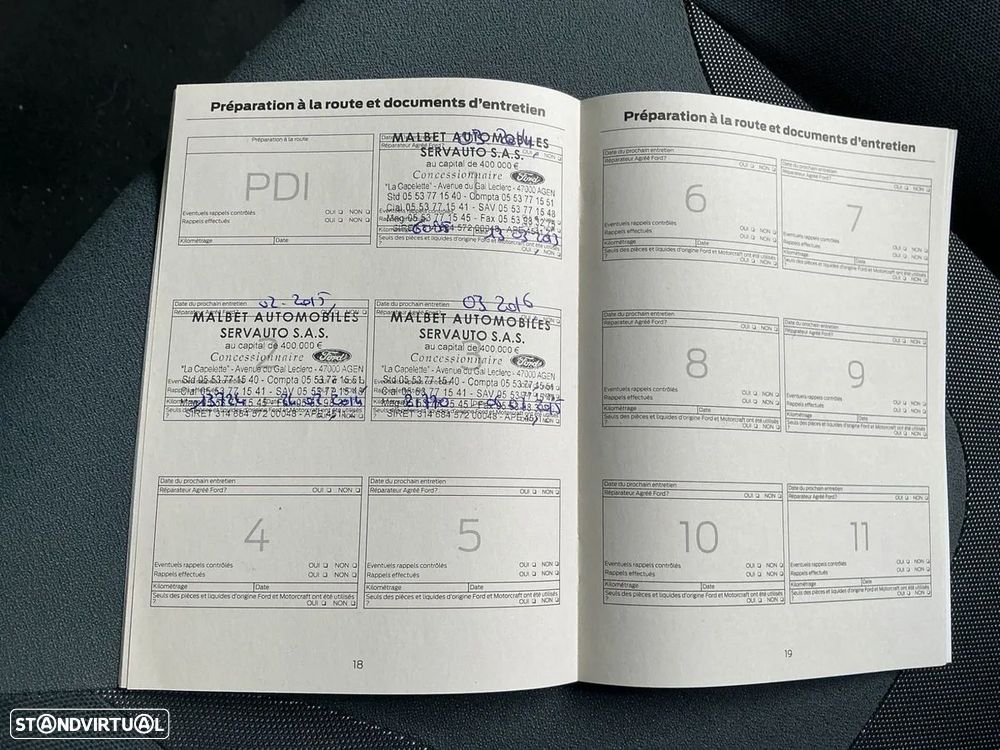 Préparation à la route et documents d'entretien
Préparation à la route
PDI
Eventuels rappels contrôlés OUI NON
Rappels effectués OUI NON
Kilométrage Date
Date du prochain entretien 03 2014
Réparateur Agréé Ford? OUI NON
MALBET AUTOMOBILES
SERVAUTO S.A.S.
au capital de 400.000 €
Concessionnaire Ford
"La Capelette" - Avenue du Gal Leclerc - 47000 AGEN
Std 05 53 77 15 40 - Compta 05 53 77 15 51
Cial 05 53 77 15 41 - SAV 05 53 77 15 48
Mag 05 53 77 15 45 - Fax
SIRET 314 684 572 00048 - APE
Seuls des pièces et liquides d'origine Ford et Motorcraft ont été utilisés
OUI NON
Date du prochain entretien 02-2015
MALBET AUTOMOBILES
SERVAUTO S.A.S.
au capital de 400.000 €
2
Concessionnaire Ford
"La Capelette" - Avenue du Gal Leclerc - 47000 AGEN
Std 05 53 77 15 40 - Compta 05 53 77 15 51
Cial 05 53 77 15 41 - SAV 05 53 77 15 48
13724 2014
SIRET 314 684 572 00048 - APE
Date du prochain entretien 03 2016
MALBET AUTOMOBILES
SERVAUTO S.A.S.
au capital de 400.000 €
3
Concessionnaire Ford
"La Capelette" - Avenue du Gal Leclerc - 47000 AGEN
Std 05 53 77 15 40 - Compta 05 53 77 15 51
Cial 05 53 77 15 41 - SAV 05 53 77 15 48
2015
SIRET 314 684 572 00048 - APE
Date du prochain entretien
Réparateur Agréé Ford? OUI NON
4
Eventuels rappels contrôlés OUI NON
Rappels effectués OUI NON
Kilométrage Date
Seuls des pièces et liquides d'origine Ford et Motorcraft ont été utilisés
? OUI NON
Date du prochain entretien
Réparateur Agréé Ford? OUI NON
5
Eventuels rappels contrôlés OUI NON
Rappels effectués OUI NON
Kilométrage Date
Seuls des pièces et liquides d'origine Ford et Motorcraft ont été utilisés
? OUI NON
18
Préparation à la route et documents d'entretien
Date du prochain entretien
Réparateur Agréé Ford? OUI NON
6
Eventuels rappels contrôlés OUI NON
Rappels effectués OUI NON
Kilométrage Date
Seuls des pièces et liquides d'origine Ford et Motorcraft ont été utilisés
? OUI NON
Date du prochain entretien
Réparateur Agréé Ford? OUI NON
7
Eventuels rappels contrôlés OUI NON
Rappels effectués OUI NON
Kilométrage Date
Seuls des pièces et liquides d'origine Ford et Motorcraft ont été utilisés
? OUI NON
Date du prochain entretien
Réparateur Agréé Ford? OUI NON
8
Eventuels rappels contrôlés OUI NON
Rappels effectués OUI NON
Kilométrage Date
Seuls des pièces et liquides d'origine Ford et Motorcraft ont été utilisés
? OUI NON
Date du prochain entretien
Réparateur Agréé Ford? OUI NON
9
Eventuels rappels contrôlés OUI NON
Rappels effectués OUI NON
Kilométrage Date
Seuls des pièces et liquides d'origine Ford et Motorcraft ont été utilisés
? OUI NON
Date du prochain entretien
Réparateur Agréé Ford? OUI NON
10
Eventuels rappels contrôlés OUI NON
Rappels effectués OUI NON
Kilométrage Date
Seuls des pièces et liquides d'origine Ford et Motorcraft ont été utilisés
? OUI NON
Date du prochain entretien
Réparateur Agréé Ford? OUI NON
11
Eventuels rappels contrôlés OUI NON
Rappels effectués OUI NON
Kilométrage Date
Seuls des pièces et liquides d'origine Ford et Motorcraft ont été utilisés
? OUI NON
19
STANDVIRTUAL